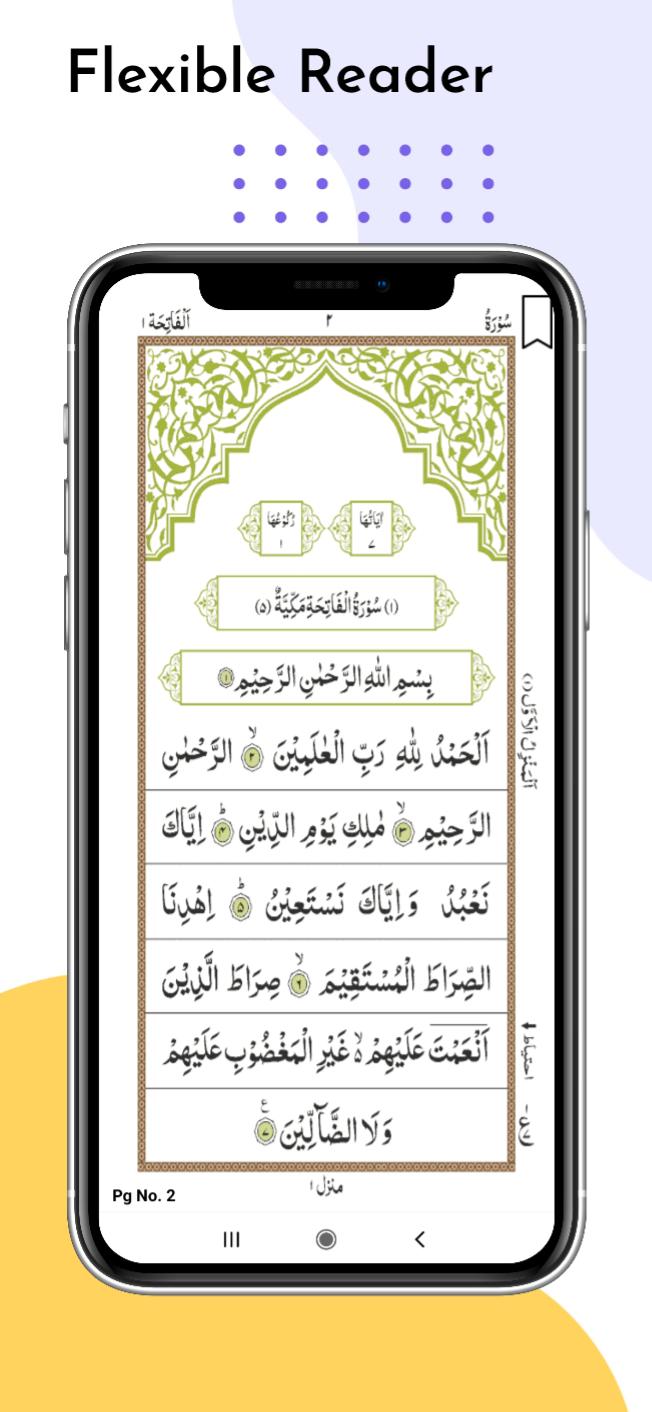 Flexible Reader
سُوْرَةُ ٢ اَلْفَاتِحَة ١
اٰيَاتُهَا ٧ رُكُوْعُهَا ١
(١) سُوْرَةُ الْفَاتِحَةِ مَكِّيَّةٌ (٥)
بِسْمِ اللّٰهِ الرَّحْمٰنِ الرَّحِيْمِ ١
اَلْحَمْدُ لِلّٰهِ رَبِّ الْعٰلَمِيْنَ ۙ ٢ الرَّحْمٰنِ
الرَّحِيْمِ ۙ ٣ مٰلِكِ يَوْمِ الدِّيْنِ ؕ ٤ اِيَّاكَ
نَعْبُدُ وَاِيَّاكَ نَسْتَعِيْنُ ؕ ٥ اِهْدِنَا
الصِّرَاطَ الْمُسْتَقِيْمَ ۙ ٦ صِرَاطَ الَّذِيْنَ
اَنْعَمْتَ عَلَيْهِمْ ۙ۬ غَيْرِ الْمَغْضُوْبِ عَلَيْهِمْ
وَلَا الضَّآلِّيْنَ ٧ ع
اَلْمَنْزِلُ الْاَوَّلُ (١)
احتياط
منزل ١
Pg No. 2